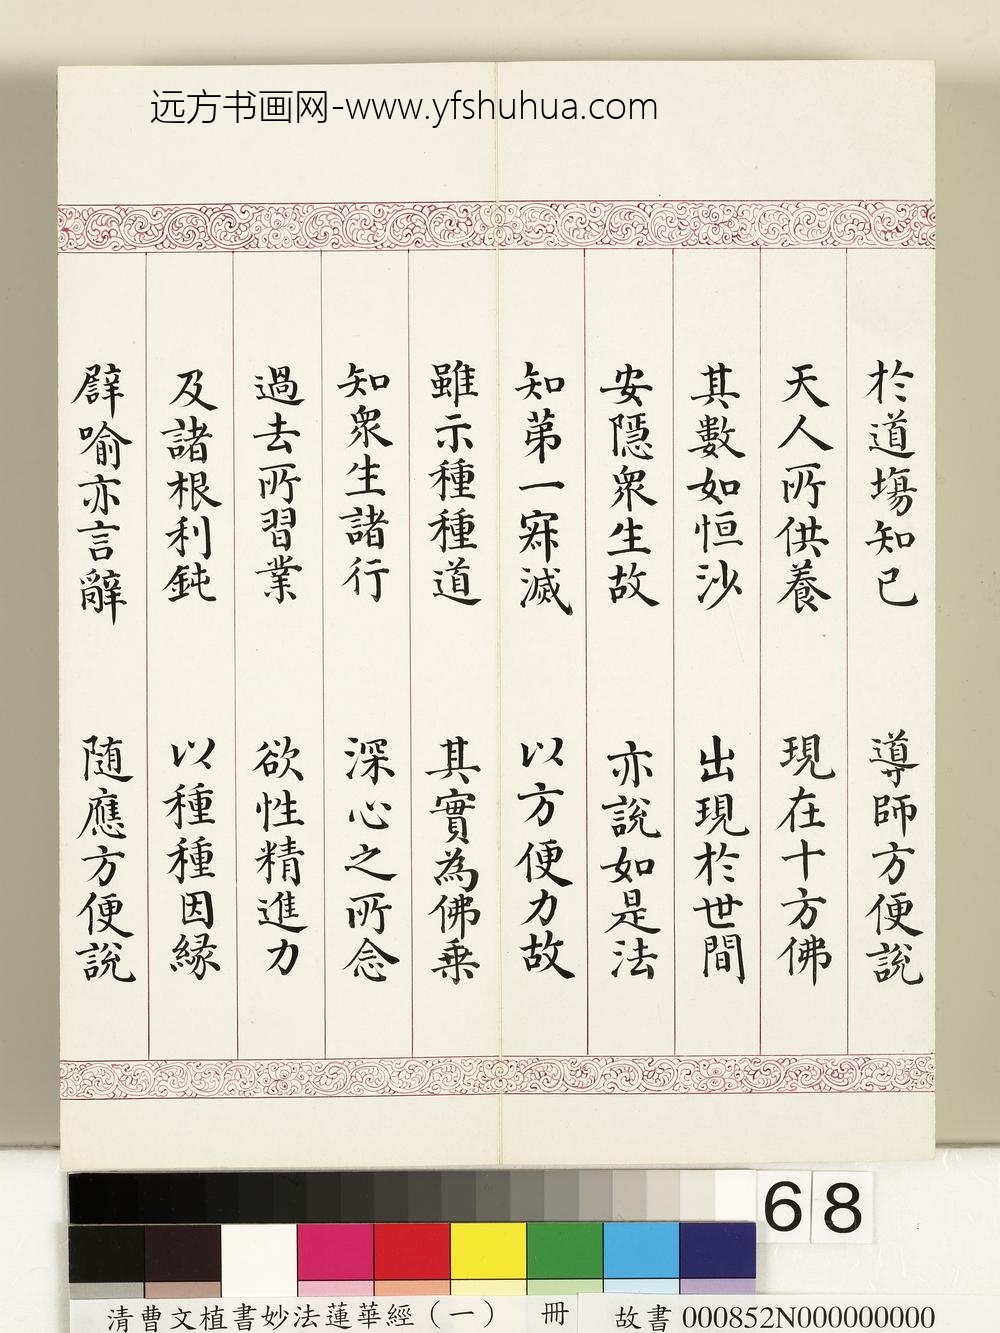 远方书画网-www.yfshuhua.com
於道場知已　導師方便說
天人所供養　現在十方佛
其數如恒沙　出現於世間
安隱眾生故　亦說如是法
知第一寂滅　以方便力故
雖示種種道　其實為佛乗
知眾生諸行　深心之所念
過去所習業　欲性精進力
及諸根利鈍　以種種因縁
譬喻亦言辭　随應方便說
68
清曹文植書妙法蓮華經（一）　冊　故書 000852N000000000